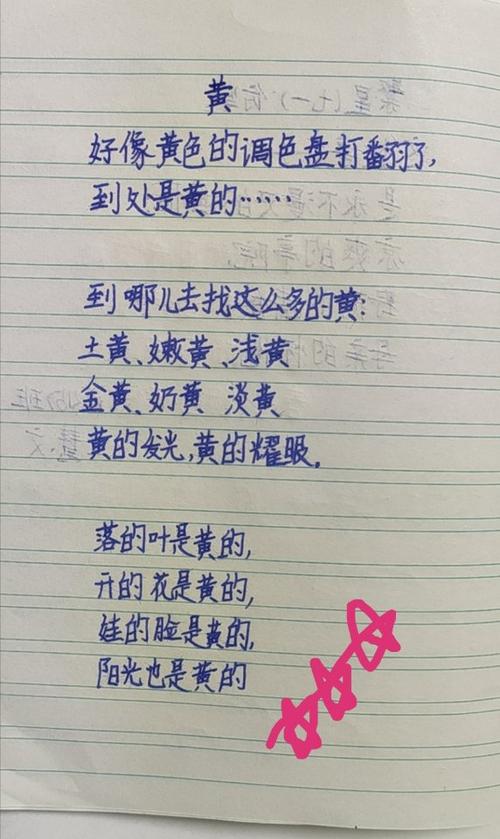 黄
好像黄色的调色盘打翻了,
到处是黄的······
到哪儿去找这么多的黄:
土黄、嫩黄、浅黄
金黄、奶黄 淡黄
黄的发光,黄的耀眼.
落的叶是黄的,
开的花是黄的,
娃的脸是黄的,
阳光也是黄的